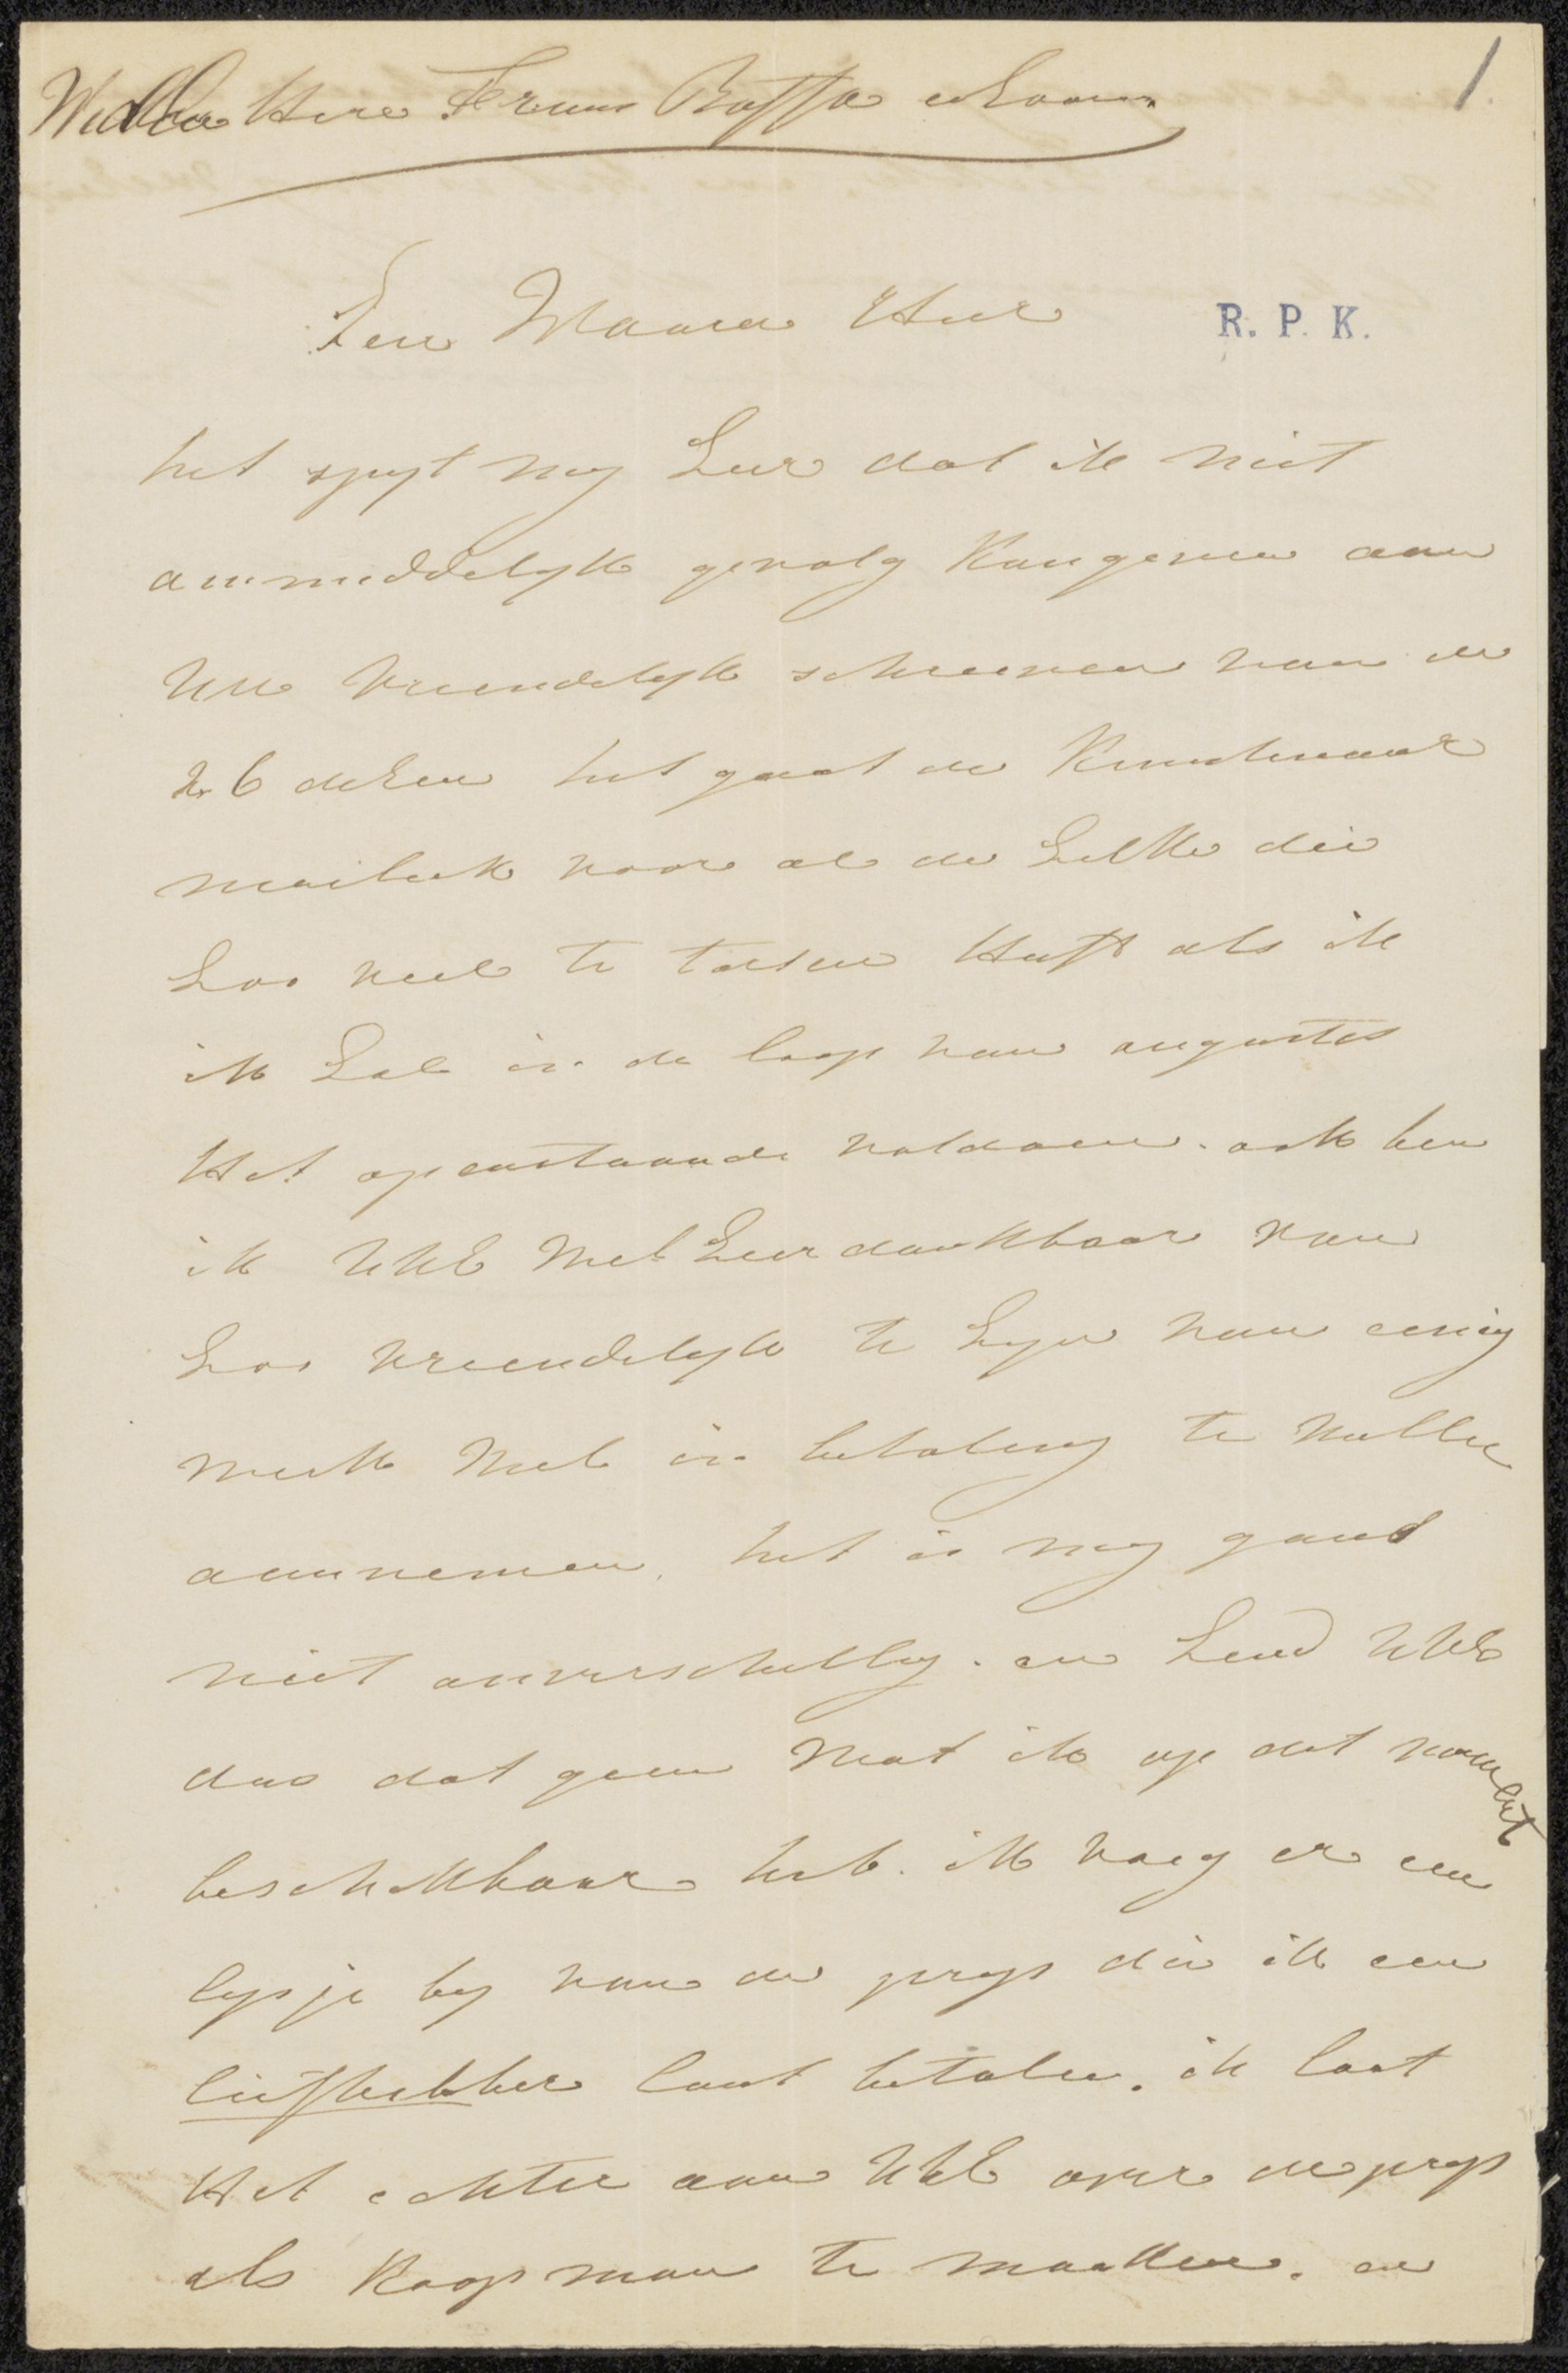 Wed Here Frans Buffa en Soonen
1
Een Waarde Heer
R. P. K.
het spyt my Zeer dat ik niet
ommiddelyk gevolg kan geven aan
Uw vriendelyk schreven van de
26 dezen het gaat de Kunstenaar
moiluk voor al de Zelke die
Zoo veel te torsen Heeft als ik
ik Zal in de loop van augustes
Het openstaande voldoen. ook ben
ik UWE Wel Zeer dankbaar van
Zoo vriendelyk te Zyn van eenig
werk Wel in betaling te Willen
aannemen. het is my gans
niet onverschillig. en Zend UWE
dus dat geen Wat ik op dit moment
beschikbaar heb. ik voeg er een
lysje by van de prys die ik een
liefhebber laat betalen. ik laat
Het echter aan UWE over de prys
als Koopman te maaken. en